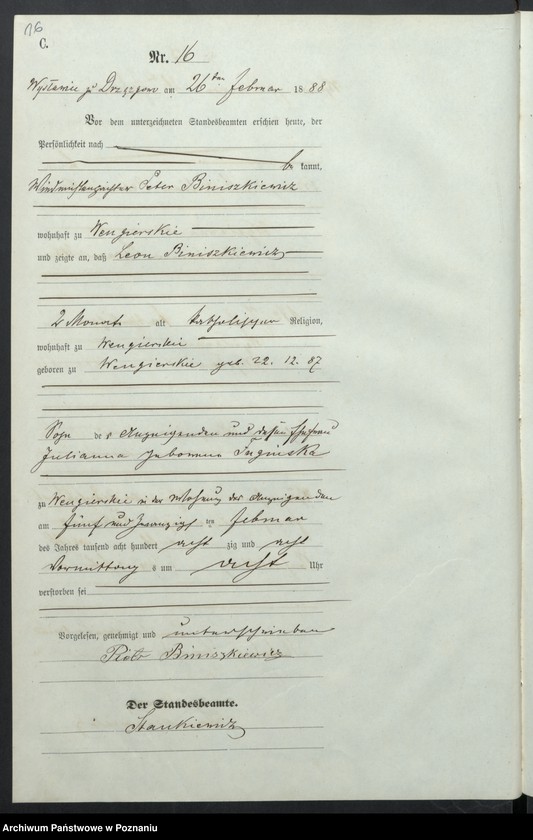 16
C.
Nr. 16
am 26ten Februar 1888
Vor dem unterzeichneten Standesbeamten erschien heute, der
Persönlichkeit nach
be kannt,
Windmühlenpächter Peter Biniszkiewicz
wohnhaft zu Wengierskie
und zeigte an, daß Leon Biniszkiewicz
2 Monat alt katholischer Religion,
wohnhaft zu Wengierskie
geboren zu Wengierskie geb. 22. 12. 87
Sohn des Anzeigenden und dessen Ehefrau
Julianna geborene
zu Wengierskie in der Wohnung des Anzeigenden
am fünf und zwanzigsten Februar
des Jahres tausend acht hundert acht zig und acht
Vormittags um acht Uhr
verstorben sei
Vorgelesen, genehmigt und unterschrieben
Piotr Biniszkiewicz
Der Standesbeamte.
Stankiewicz
Archiwum Państwowe w Poznaniu